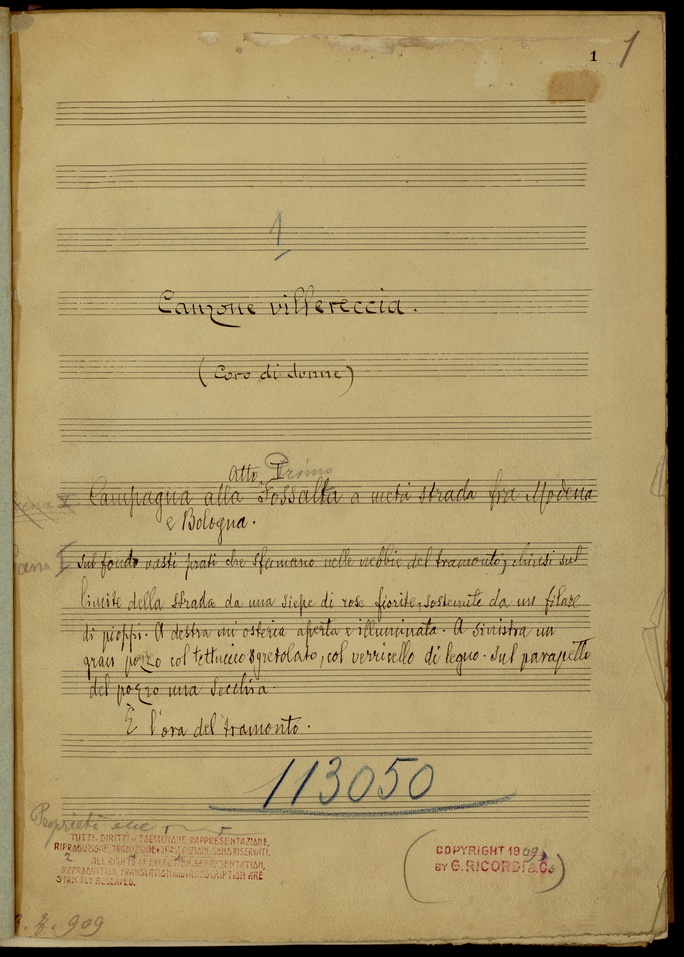 1 1
1
Canzone villereccia.
(Coro di donne)
Atto I Primo
Campagna alla Fossalta a metà strada fra Modena
e Bologna.
Scena I sul fondo vasti prati che sfumano nelle nebbie del tramonto, chiusi sul
limite della strada da una siepe di rose fiorite, sostenute da un filare
di pioppi. A destra un'osteria aperta e illuminata. A sinistra un
gran pozzo col tettuccio sgretolato, col verricello di legno. sul parapetto
del pozzo una secchia.
È l'ora del tramonto.
113050
Proprietà
TUTTI DIRITTI DI ESECUZIONE, RAPPRESENTAZIONE,
RIPRODUZIONE, TRADUZIONE E TRASCRIZIONE SONO RISERVATI.
ALL RIGHTS OF EXECUTION, REPRESENTATION,
REPRODUCTION, TRANSLATION AND TRANSCRIPTION ARE
STRICTLY RESERVED.
COPYRIGHT 1909,
BY G. RICORDI & Co.
909